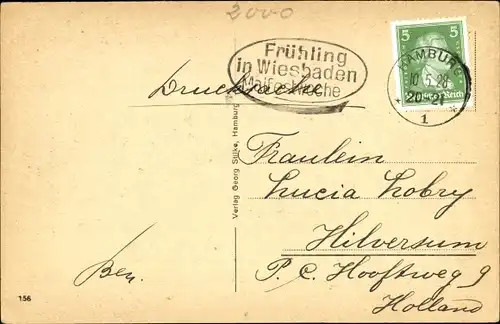 2000
Frühling
in Wiesbaden
Maifestwoche
Drucksache
5 5
Deutsches Reich
HAMBURG
10.5.28
20-21
* 1 *
Verlag Georg Stilke, Hamburg
Fräulein
Lucia Lobry
Hilversum
P. C. Hooftweg 9
Holland
Ben.
156